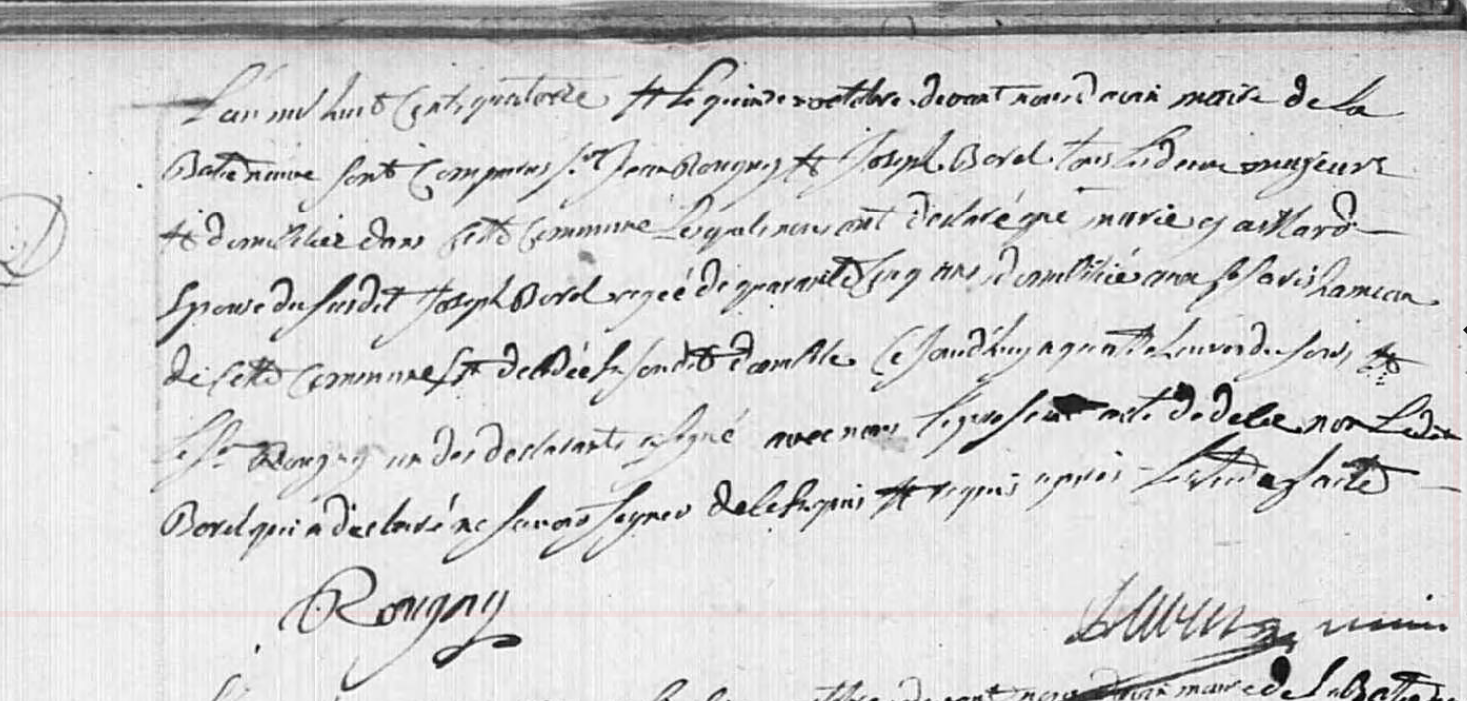 L'an mil huit cent quatorze et le quinze octobre devant nous d'avin maire de la
Batie neuve sont comparus sr Jean Rougny et Joseph Borel tous les deux majeurs
et domicilié dans cette commune lesquels nous ont déclaré que marie gaillard
Epouse du susdit Joseph Borel agée de quarante cinq ans domiciliée aux hameau
de cette commune est décédée son dit domicile ce jourd'huy a heures du soir et
le sr Rougny un des déclarants a signé avec nous le présent acte de décé non ledit
Borel qui a déclaré ne savoir signer de le requis et requis après lecture faite
Rougny
maire
devant nous maire de la Batie